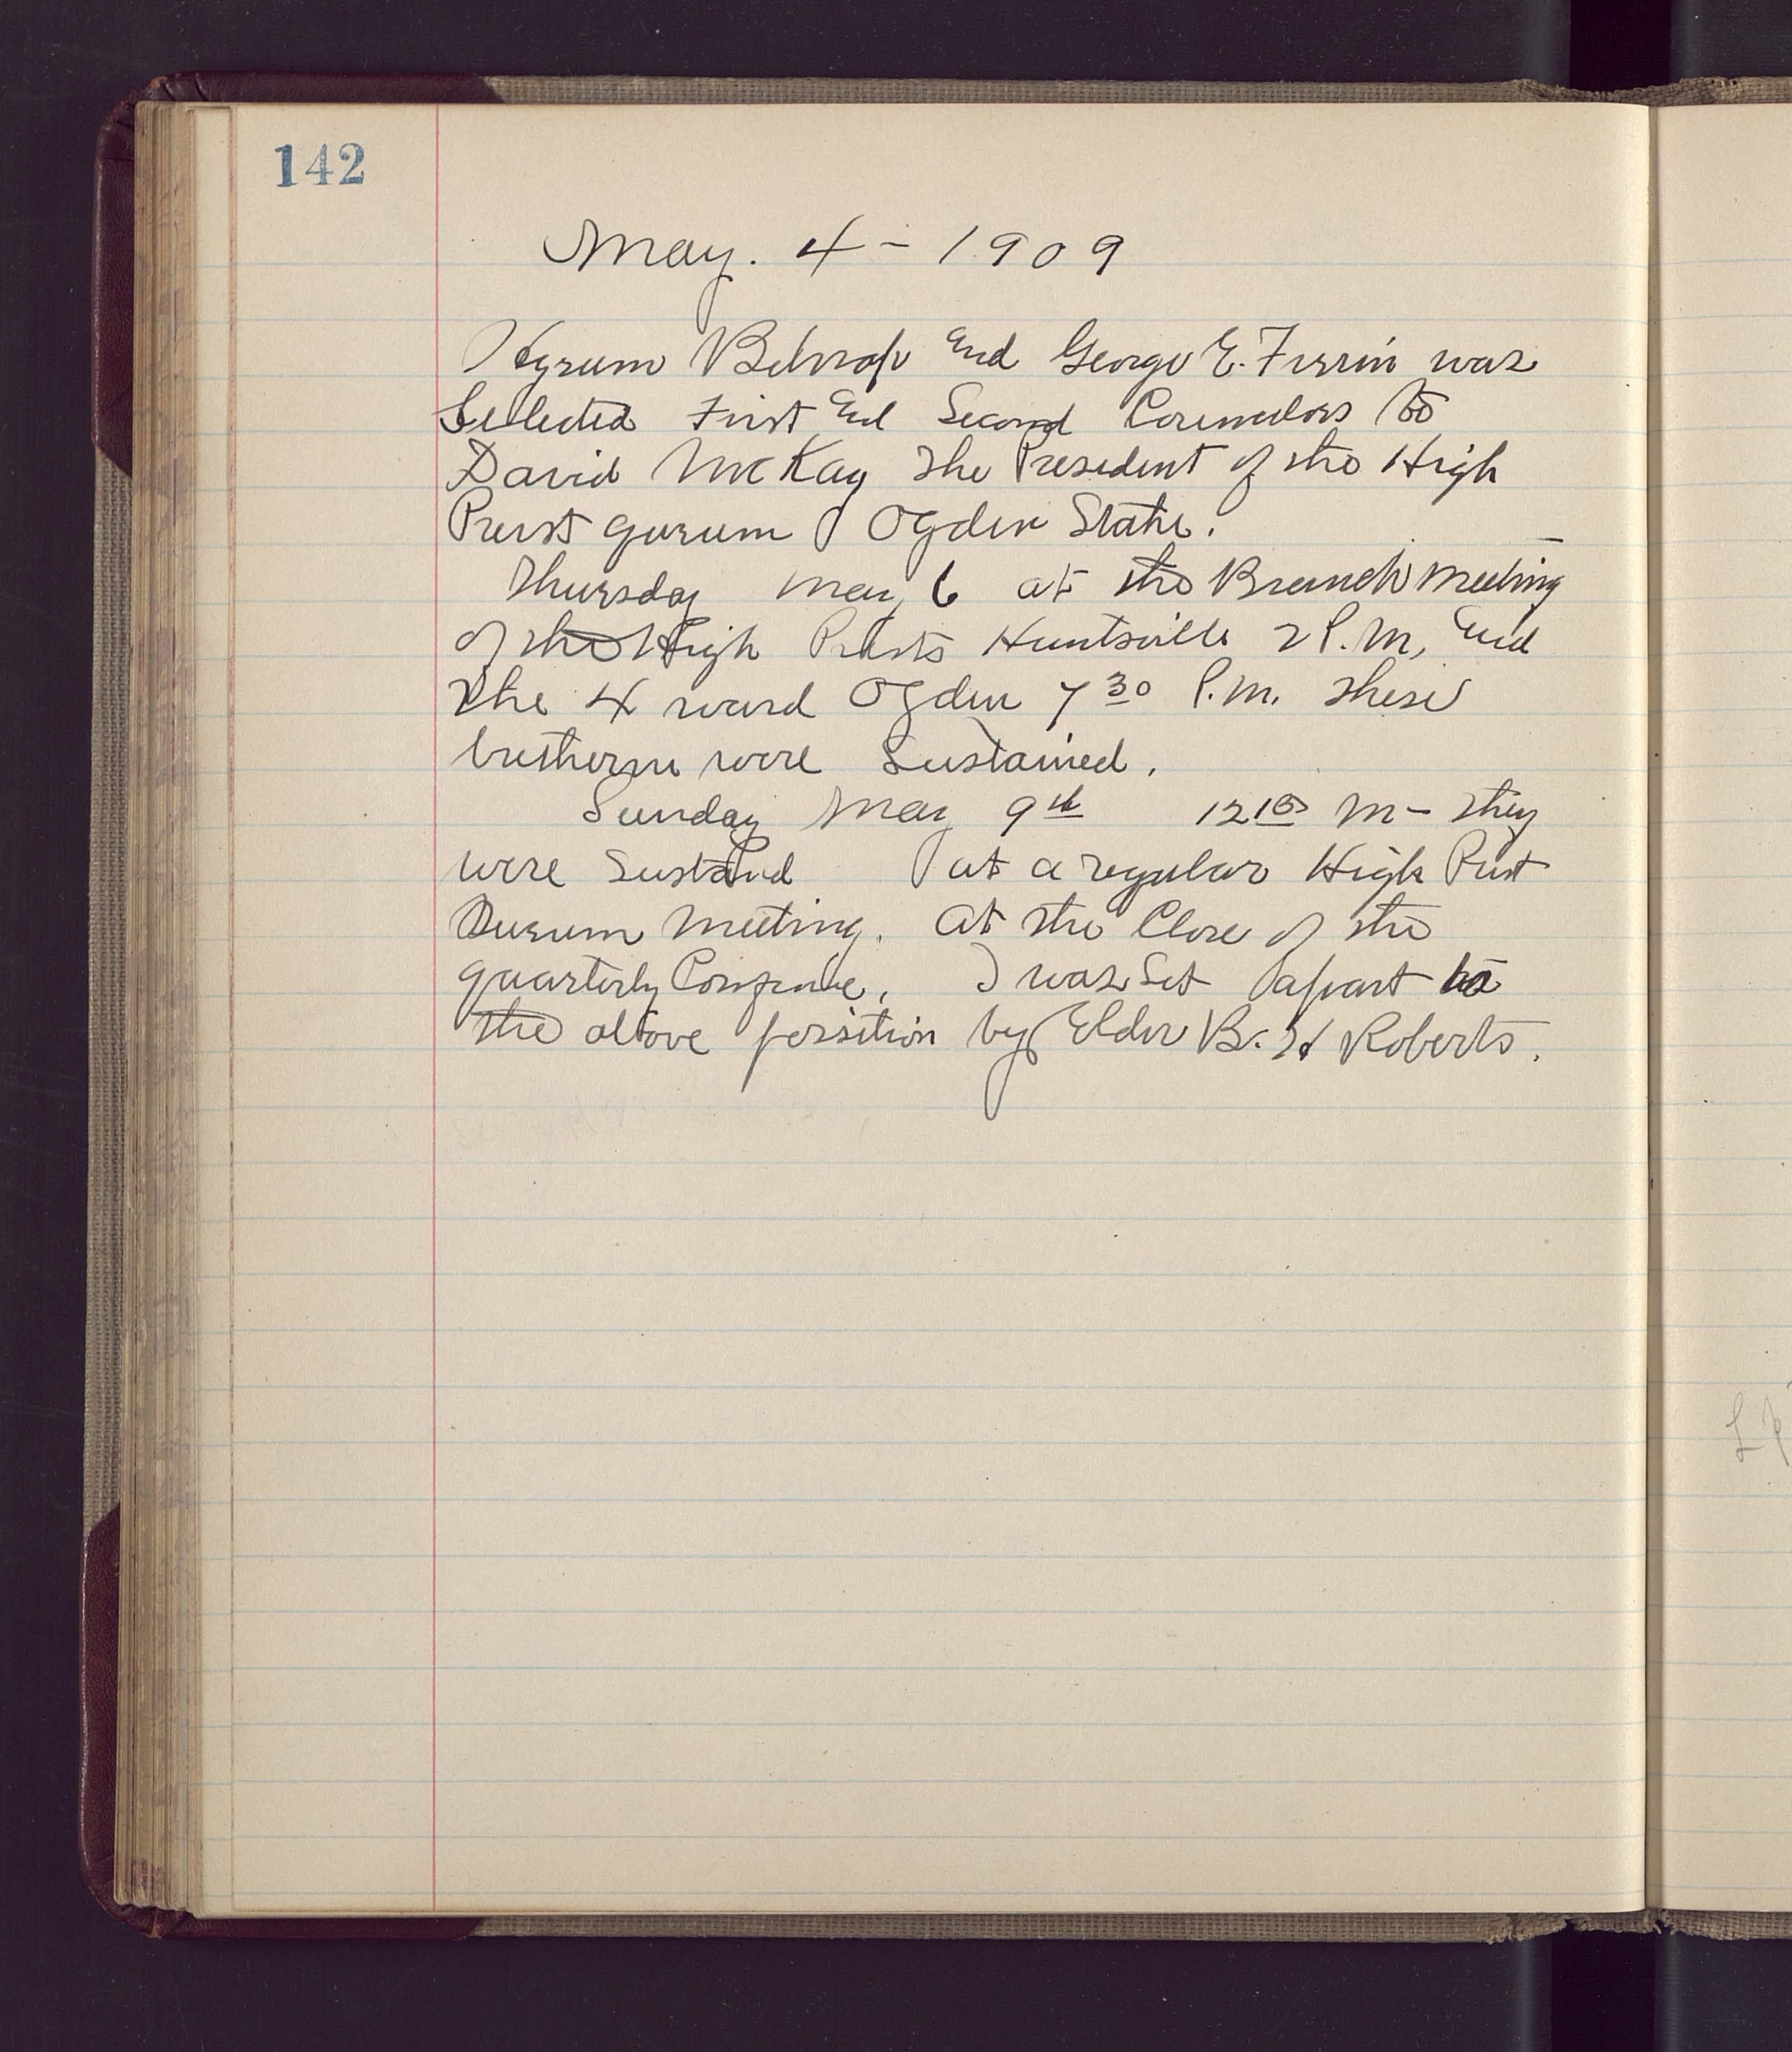 142
May. 4 - 1909
Hyrum Belnap and George E. Ferrin was
Sellected First and Second Councelors to
David McKay the President of the High
Preist qurum Ogden Stake.
Thursday May 6 at the Branch Meeting
of the High Priests Huntsville 2 P.M, and
the 4 ward Ogden 7 30 P.M. these
bretherm were Sustained.
Sunday May 9th 12 M - they
were Sustaned at a regular High Prist
Qurum Meeting. At the Close of the
quarterly Confrence, I was Set apart to
the above possition by Elder B. H Roberts.